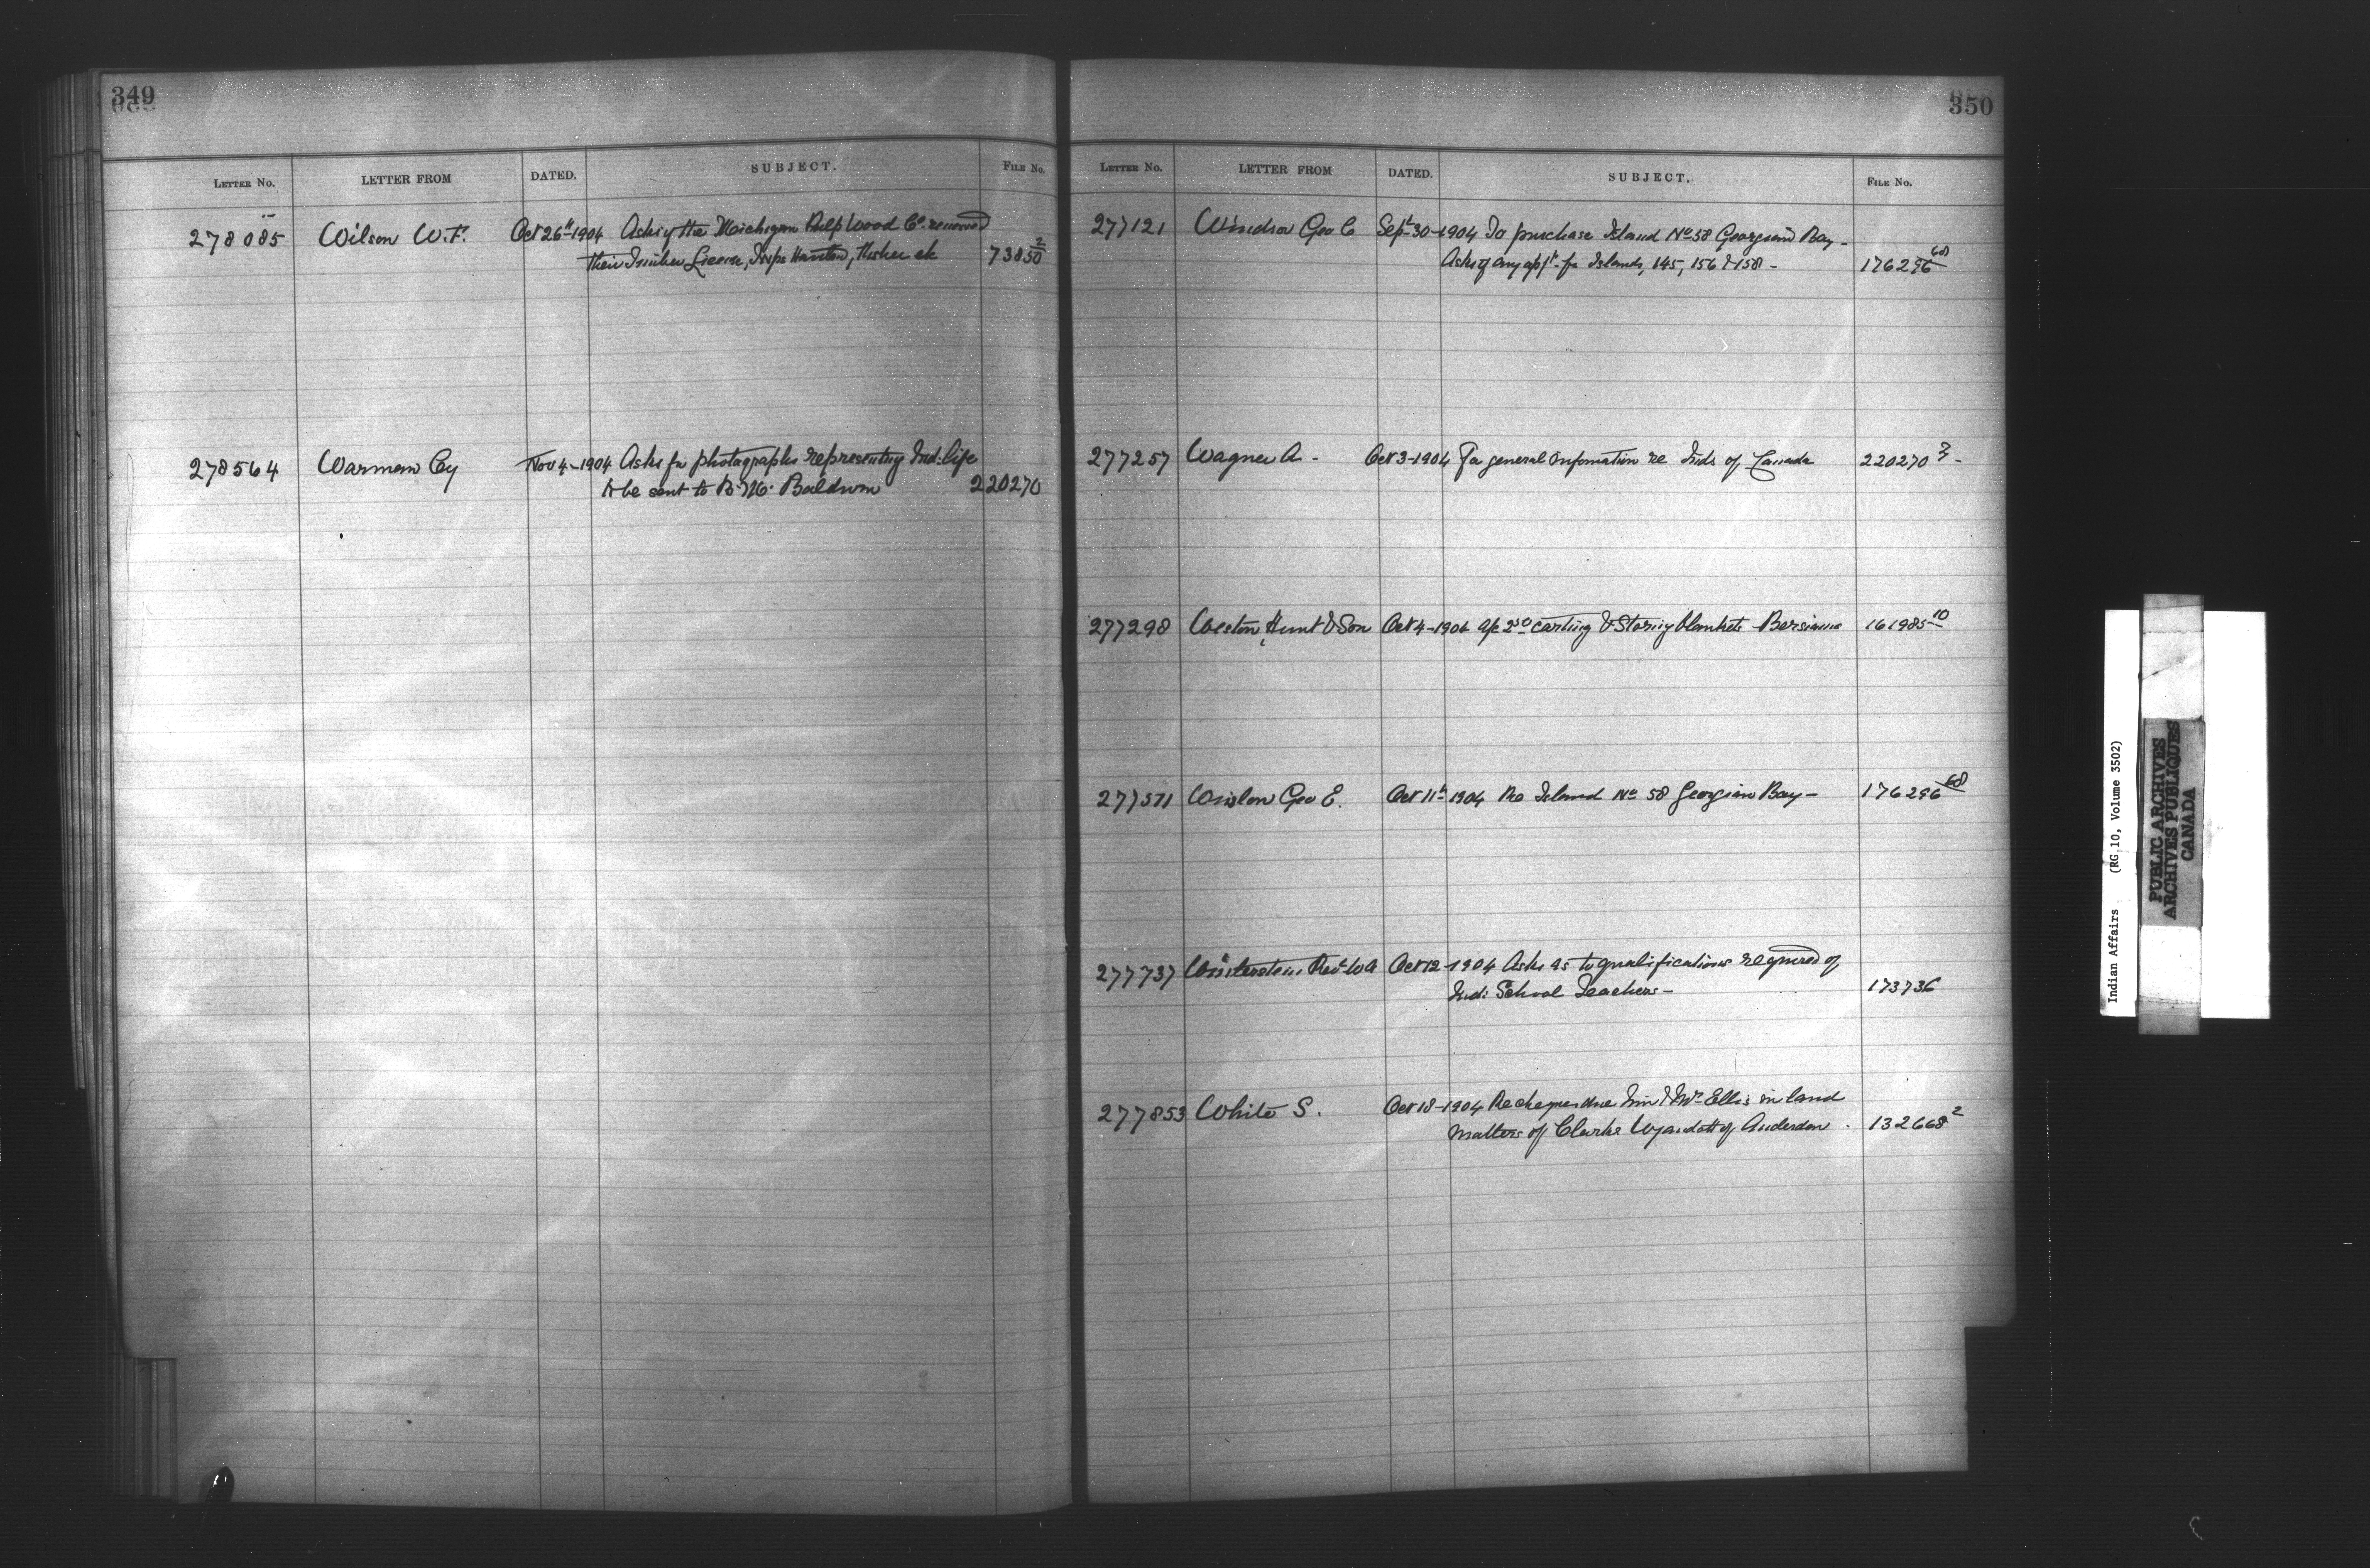 349
LETTER No. LETTER FROM DATED. SUBJECT. FILE No.
278085 Wilson W.F. Oct 26th 1904 Asks if the Michigan Pulp Wood Co. renewed
their Timber License, Twps Fisher etc 73850 2
278564 Warman Cy Nov 4-1904 Asks for photographs representing Ind: life
to be sent to Baldwin 220270
350
LETTER No. LETTER FROM DATED. SUBJECT. FILE No.
277121 Geo C Sept 30-1904 To purchase Island No 58 Georgian Bay-
Asks if any applt. for Islands, 145, 156 & 158 - 176296 60
277257 Wagner A - Oct 3-1904 For general information re Inds of Canada 220270 3-
277298 Weston, Hunt & Son Oct 4-1904 a/c 2 50 carting & Storing blankets Bersimis 161985-10
277571 Geo E. Oct 11th 1904 Re Island No 58 Georgian Bay- 176296 60
277737 Revd. W A Oct 12-1904 Asks as to qualifications required of
Ind: School Teachers- 173736
277853 White S. Oct 18-1904 Re cheques due him & Mr Ellis in land
matters of Clarke Wyandott of Anderdon. 132668 2
Indian Affairs (RG 10, Volume 3502)
PUBLIC ARCHIVES
ARCHIVES PUBLIQUES
CANADA